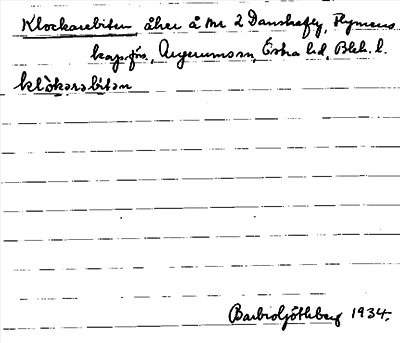 Klockarebiten åker å Nr 2 Danskefly, Flymens
kap.förs., Augerums sn, Östra hd, Blek. l.
klòkarabitən
Barbro Göthberg 1934.